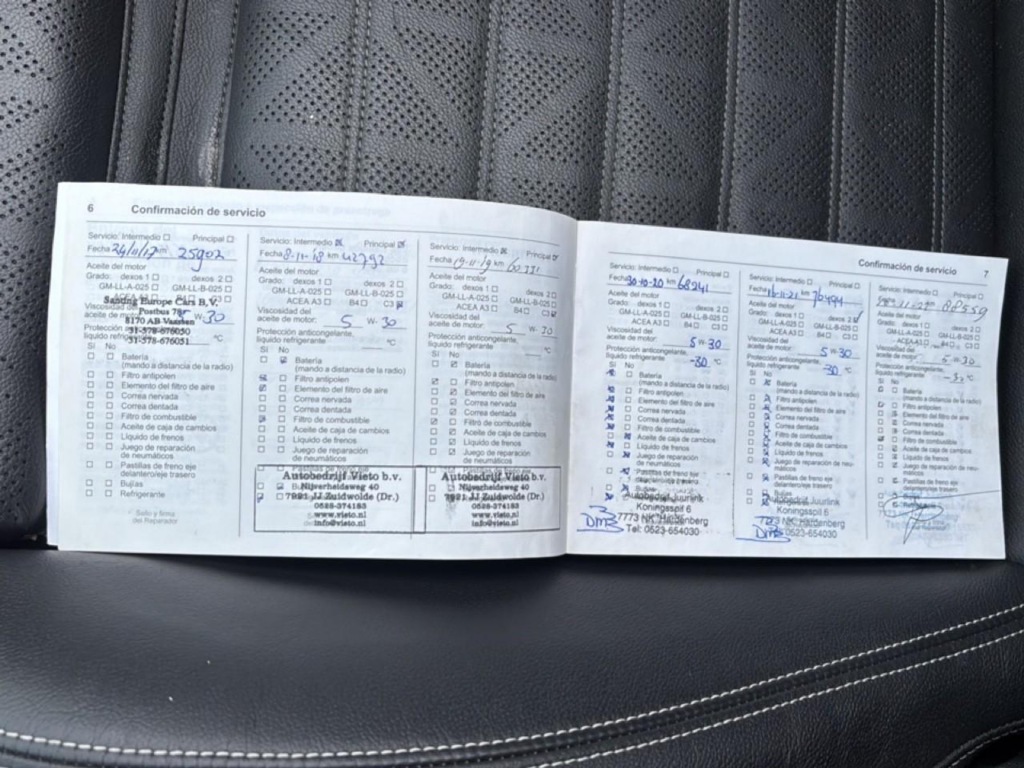 6 Confirmación de servicio
Servicio: Intermedio Principal
Fecha 24/11/17 km 25902
Aceite del motor
Grado: dexos 1 dexos 2
GM-LL-A-025 GM-LL-B-025
Viscosidad del
aceite de motor: W- 30
Sanding Europe Cars B.V.
8170 AB Vaassen
31-578-676050
31-578-676051
Protección
líquido refrigerante °C
Sí No
Batería
(mando a distancia de la radio)
Filtro antipolen
Elemento del filtro de aire
Correa nervada
Correa dentada
Filtro de combustible
Aceite de caja de cambios
Líquido de frenos
Juego de reparación
de neumáticos
Pastillas de freno eje
delantero/eje trasero
Bujías
Refrigerante
Sello y firma
del Reparador
Servicio: Intermedio Principal
Fecha 8-11-18 km 42792
Aceite del motor
Grado: dexos 1 dexos 2
GM-LL-A-025 GM-LL-B-025
ACEA A3 B4 C3
Viscosidad del
aceite de motor: 5 W- 30
Protección anticongelante,
líquido refrigerante °C
Sí No
Batería
(mando a distancia de la radio)
Filtro antipolen
Elemento del filtro de aire
Correa nervada
Correa dentada
Filtro de combustible
Aceite de caja de cambios
Líquido de frenos
Juego de reparación
de neumáticos
Autobedrijf Vieto b.v.
Nijverheidsweg 40
7921 JJ Zuidwolde (Dr.)
0528-374183
www.vieto.nl
info@vieto.nl
Servicio: Intermedio Principal
Fecha 19-11-19 km
Aceite del motor
Grado: dexos 1 dexos 2
GM-LL-A-025 GM-LL-B-025
ACEA A3 B4 C3
Viscosidad del
aceite de motor: 5 W- 30
Protección anticongelante,
líquido refrigerante °C
Sí No
Batería
(mando a distancia de la radio)
Filtro antipolen
Elemento del filtro de aire
Correa nervada
Correa dentada
Filtro de combustible
Aceite de caja de cambios
Líquido de frenos
Juego de reparación
de neumáticos
Pastillas de freno eje
Autobedrijf Vieto b.v.
Nijverheidsweg 40
7921 JJ Zuidwolde (Dr.)
0528-374183
www.vieto.nl
info@vieto.nl
Confirmación de servicio 7
Servicio: Intermedio Principal
30-10-20 km 68241
Aceite del motor
Grado: dexos 1 dexos 2
GM-LL-A-025 GM-LL-B-025
ACEA A3 B4 C3
Viscosidad del
aceite de motor: 5 W- 30
Protección anticongelante,
líquido refrigerante -30 °C
Sí No
Batería
(mando a distancia de la radio)
Filtro antipolen
Elemento del filtro de aire
Correa nervada
Correa dentada
Filtro de combustible
Aceite de caja de cambios
Líquido de frenos
Juego de reparación
de neumáticos
Pastillas de freno eje
delantero/eje trasero
Autobedrijf Juurlink
Koningsspil 6
7773 NK Hardenberg
Tel: 0523-654030
Servicio: Intermedio Principal
Fecha 16-11-21 km
Aceite del motor
Grado: dexos 1 dexos 2
GM-LL-A-025 GM-LL-B-025
ACEA A3 B4 C3
Viscosidad del
aceite de motor: 5 W- 30
Protección anticongelante,
líquido refrigerante -30 °C
Sí No
Batería
(mando a distancia de la radio)
Filtro antipolen
Elemento del filtro de aire
Correa nervada
Correa dentada
Filtro de combustible
Aceite de caja de cambios
Líquido de frenos
Juego de reparación de neumáticos
Pastillas de freno eje
delantero/eje trasero
Autobedrijf Juurlink
Koningsspil 6
7773 NK Hardenberg
Tel: 0523-654030
Servicio: Intermedio Principal
Aceite del motor
Grado: dexos 1 dexos 2
GM-LL-A-025 GM-LL-B-025
ACEA A3 B4 C3
Viscosidad del
aceite de motor: 5 W- 30
Protección anticongelante,
líquido refrigerante °C
Sí No
Batería
(mando a distancia de la radio)
Filtro antipolen
Elemento del filtro de aire
Correa nervada
Correa dentada
Filtro de combustible
Aceite de caja de cambios
Líquido de frenos
Juego de reparación de neumáticos
Pastillas de freno eje
delantero/eje trasero